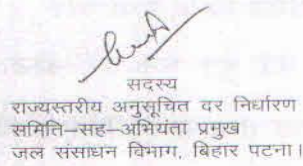 सदस्य
राज्यस्तरीय अनुसूचित दर निर्धारण
समिति–सह–अभियंता प्रमुख
जल संसाधन विभाग, बिहार पटना।